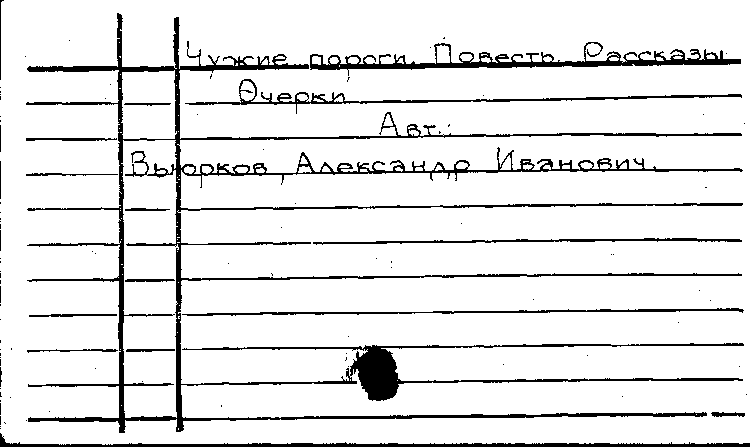 Чужие пороги. Повесть. Рассказы
Очерки
Авт.:
Вьюрков, Александр Иванович.